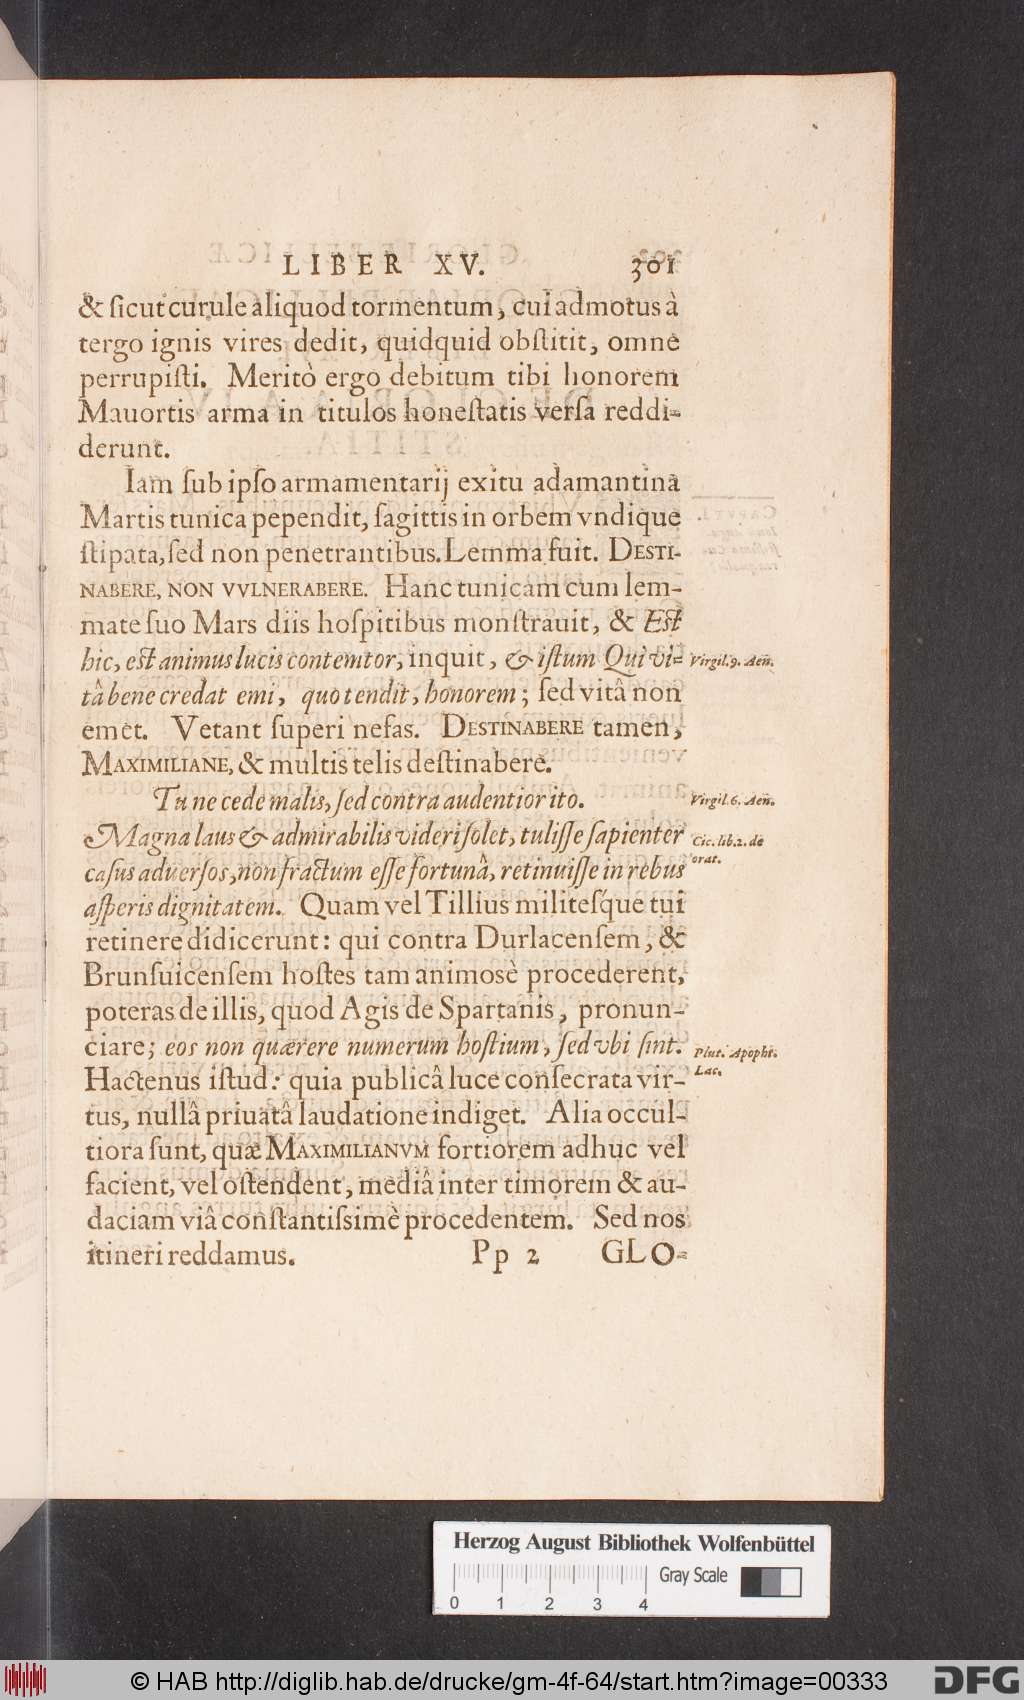 LIBER XV. 301
& ſicut curule aliquod tormentum, cui admotus à
tergo ignis vires dedit, quidquid obſtitit, omne
perrupiſti. Meritò ergo debitum tibi honorem
Mauortis arma in titulos honeſtatis verſa reddi-
derunt.
Iam ſub ipſo armamentarij exitu adamantina
Martis tunica pependit, ſagittis in orbem vndique
ſtipata, ſed non penetrantibus. Lemma fuit. DESTI-
NABERE, NON VVLNERABERE. Hanc tunicam cum lem-
mate ſuo Mars diis hoſpitibus monſtrauit, & Eſt
hic, eſt animus lucis contemtor, inquit, & iſtum Qui vi- Virgil. 9. Aen.
tâ bene credat emi, quo tendit, honorem; ſed vitâ non
emet. Vetant ſuperi nefas. DESTINABERE tamen,
MAXIMILIANE, & multis telis deſtinabere.
Tu ne cede malis, ſed contra audentior ito. Virgil. 6. Aen.
Magna laus & admirabilis videri ſolet, tuliſſe ſapienter Cic. lib. 2. de
caſus aduerſos, non fractum eſſe fortunâ, retinuiſſe in rebus orat.
aſperis dignitatem. Quam vel Tillius militeſque tui
retinere didicerunt: qui contra Durlacenſem, &
Brunſuicenſem hoſtes tam animosè procederent,
poteras de illis, quod Agis de Spartanis, pronun-
ciare; eos non quærere numerum hoſtium, ſed vbi ſint. Plut. Apopht.
Hactenus iſtud: quia publicâ luce conſecrata vir- Lac.
tus, nullâ priuatâ laudatione indiget. Alia occul-
tiora ſunt, quæ MAXIMILIANVM fortiorem adhuc vel
facient, vel oſtendent, mediâ inter timorem & au-
daciam viâ conſtantiſsimè procedentem. Sed nos
itineri reddamus. Pp 2 GLO-
Herzog August Bibliothek Wolfenbüttel
Gray Scale
0 1 2 3 4
© HAB http://diglib.hab.de/drucke/gm-4f-64/start.htm?image=00333
DFG